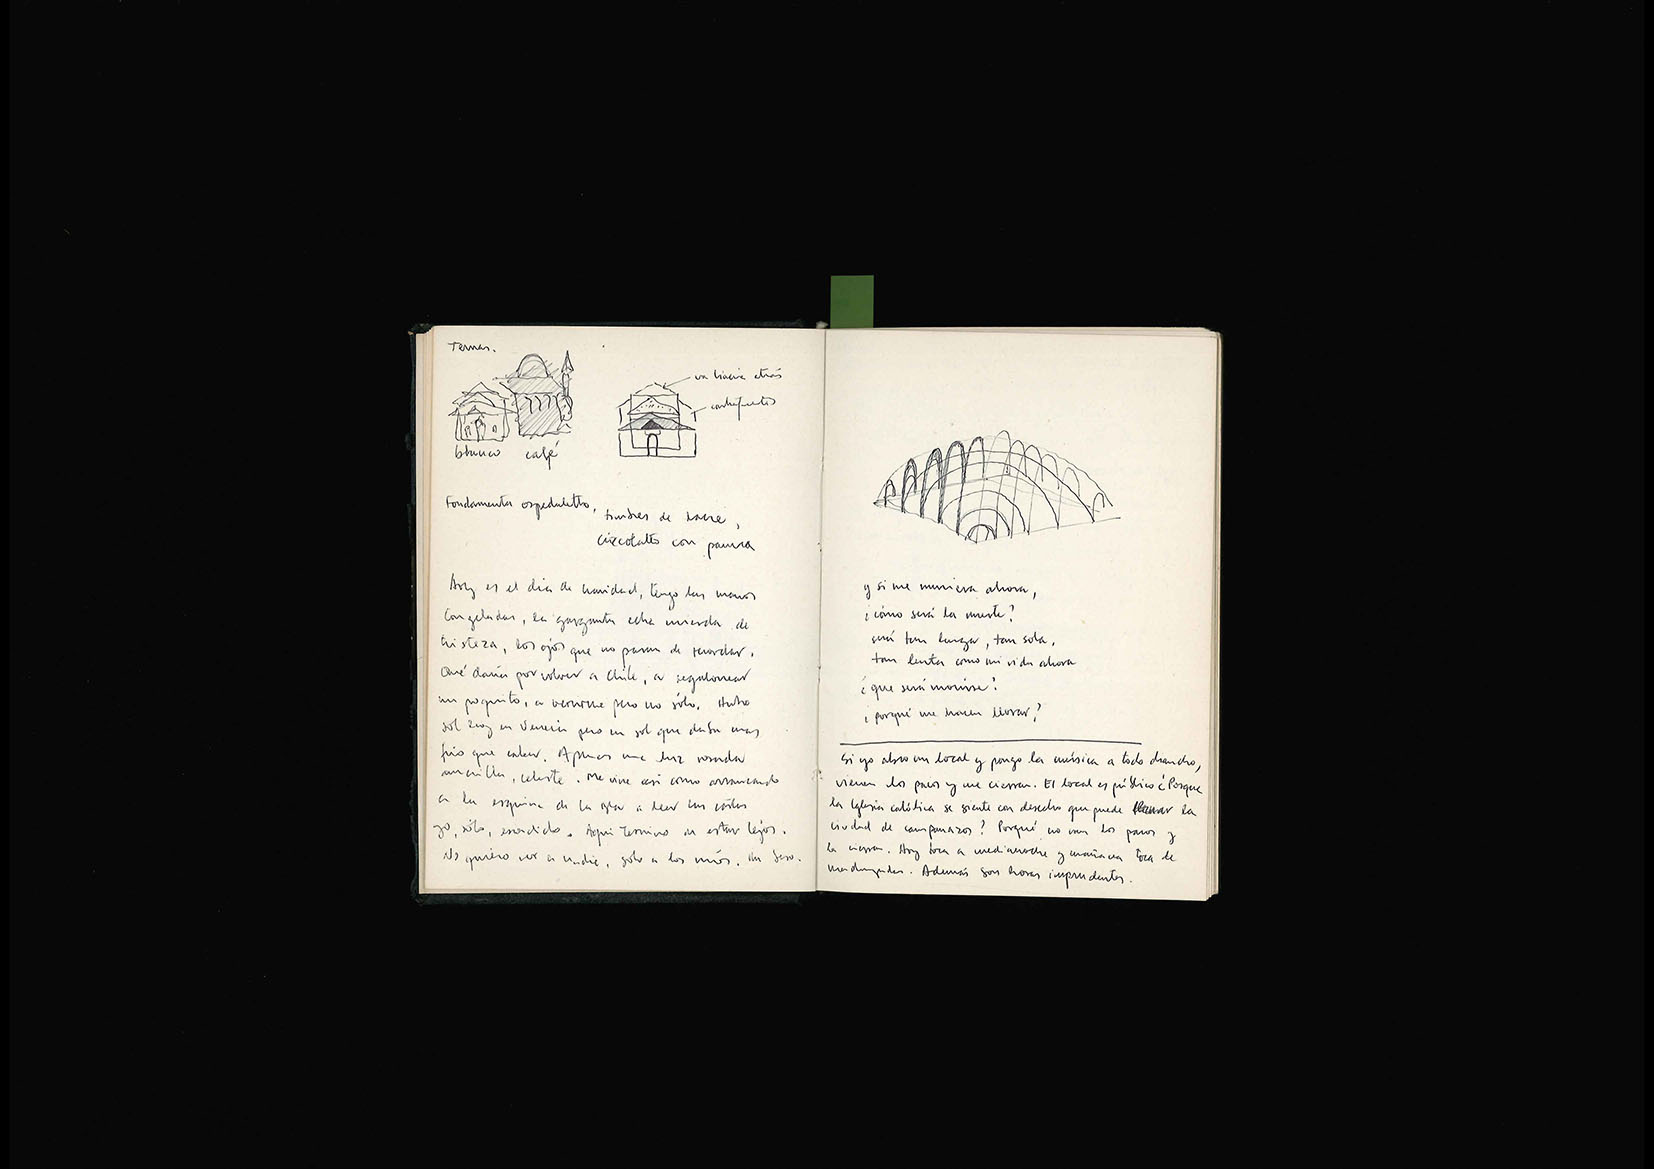 Temas.
va hacia atrás
contrafuertes
blanco café
Fondamenta ospedaletto,
timbres de lacre,
cioccolatto con panna
Hoy es el día de navidad, tengo las manos
congeladas, la garganta hecha mierda de
tristeza, los ojos que no paran de recordar.
Qué daría por volver a Chile, a regalonear
un poquito, a venirme pero no sólo. Hubo
sol hoy en Venecia pero un sol que daba mas
frío que calor. Apenas una luz rosada
amarilla, celeste. Me vine casi como arrancando
a la esquina de la a leer las cartas
yo, sólo, escondido. Aquí termino de estar lejos.
No quiero ver a nadie, solo a los míos.
y si me muriera ahora,
¿cómo será la muerte?
será tan larga, tan sola,
tan lenta como mi vida ahora
¿que será morirse?
¿porqué me hacen llorar?
Si yo abro un local y pongo la música a todo chancho,
vienen los pacos y me cierran. El local es público ¿Porque
la Iglesia católica se siente con derecho que puede llenar la
ciudad de campanazos? Porqué no van los pacos y
la cierran. Hoy toca a medianoche y mañana toca de
madrugada. Además son horas imprudentes.